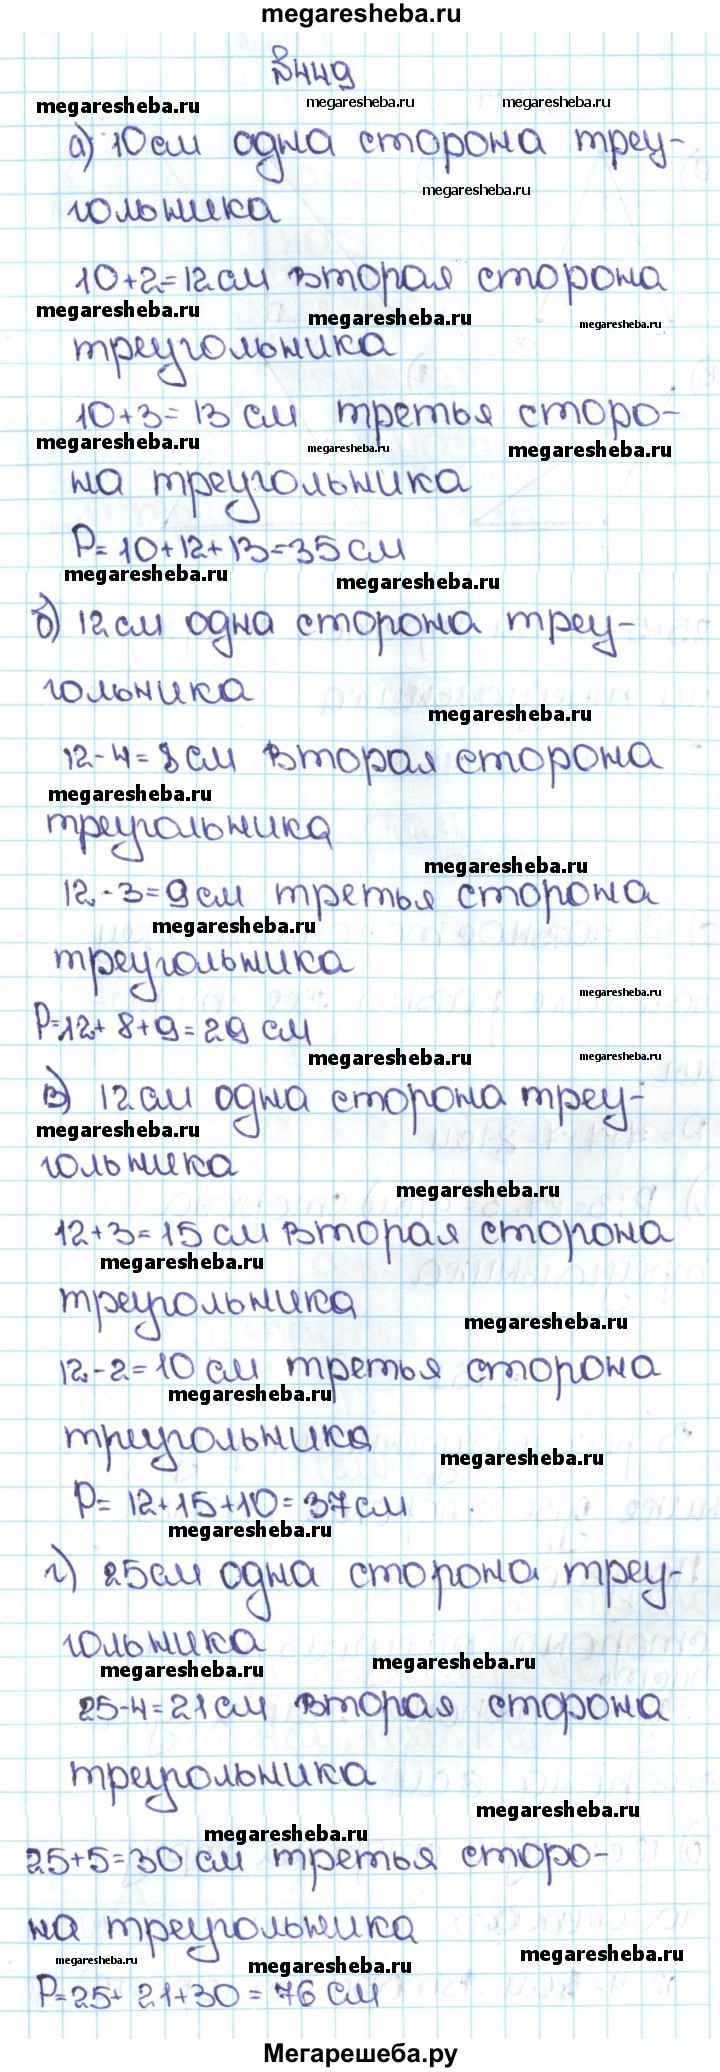 megaresheba.ru
№449
megaresheba.ru megaresheba.ru megaresheba.ru
а) 10 см одна сторона треу-
megaresheba.ru
гольника
10+2=12 см вторая сторона
megaresheba.ru megaresheba.ru megaresheba.ru
треугольника
10+3=13 см третья сторо-
megaresheba.ru megaresheba.ru megaresheba.ru
на треугольника
P=10+12+13=35 см
megaresheba.ru megaresheba.ru
б) 12 см одна сторона треу-
гольника
megaresheba.ru
12-4=8 см вторая сторона
megaresheba.ru
треугольника
megaresheba.ru
12-3=9 см третья сторона
megaresheba.ru
треугольника
megaresheba.ru
P=12+8+9=29 см
megaresheba.ru megaresheba.ru
в) 12 см одна сторона треу-
megaresheba.ru
гольника
megaresheba.ru
12+3=15 см вторая сторона
megaresheba.ru
треугольника
megaresheba.ru
12-2=10 см третья сторона
megaresheba.ru
треугольника
megaresheba.ru
P=12+15+10=37 см
megaresheba.ru
г) 25 см одна сторона треу-
гольника
megaresheba.ru megaresheba.ru
25-4=21 см вторая сторона
треугольника
megaresheba.ru
megaresheba.ru
25+5=30 см третья сторо-
на треугольника
megaresheba.ru megaresheba.ru megaresheba.ru
P=25+21+30=76 см
Мегарешеба.ру